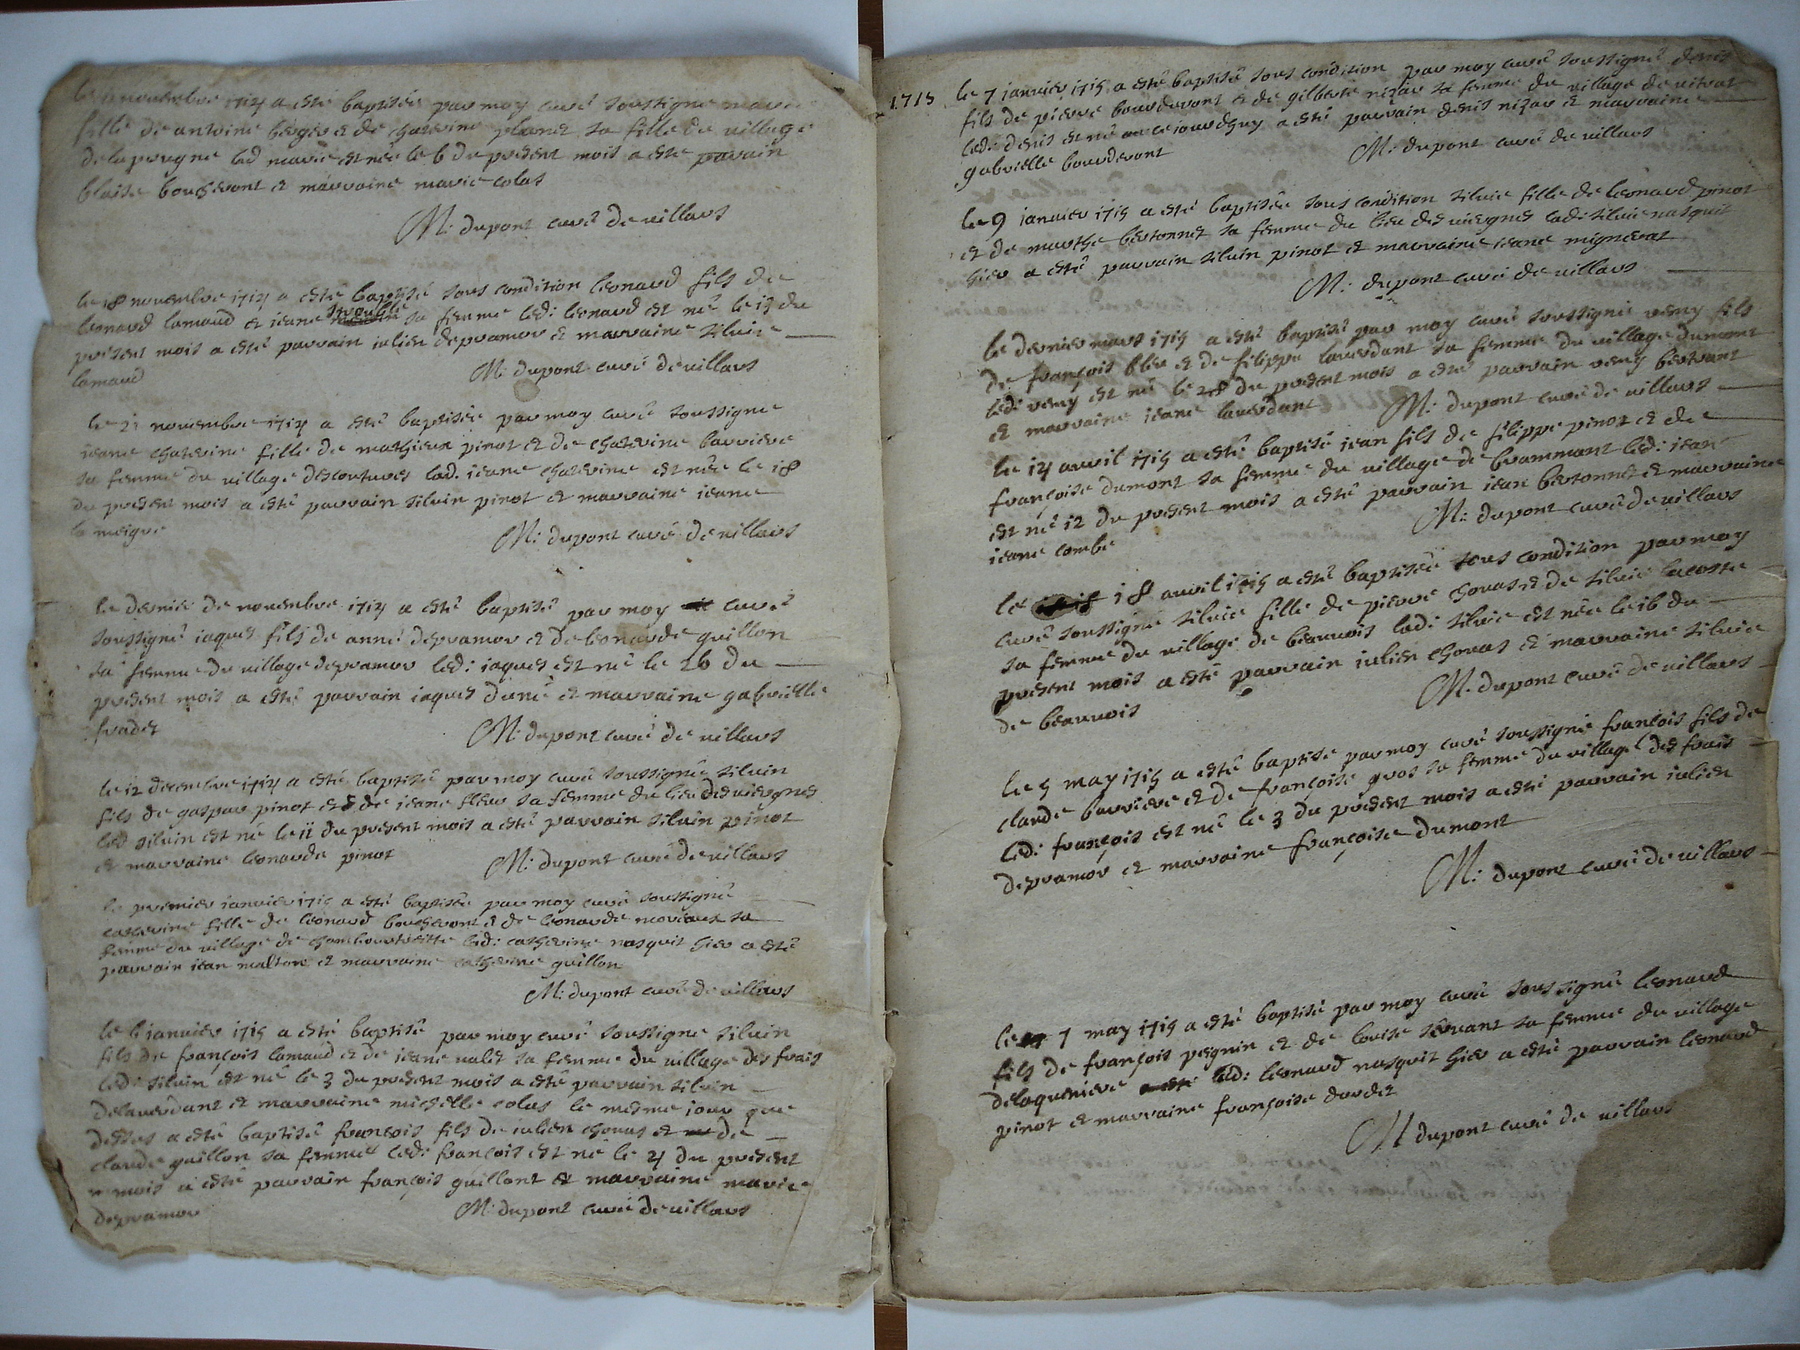 le novembre 1714 a esté baptisée par moy curé soussigne marie
fille de antoine berger et de chaterine planet sa fille du village
delapeugne lad marie est née le 6 du present mois a esté parain
blaise boucheront et marraine marie colas
M: dupont curé de villars
le 18 novembre 1714 a esté baptisé sous condition leonard fils de
leonard lamaud et jeane trouble sa femme led: leonard est né le 15 du
present mois a esté parrain julien depramor et marraine silvie
lamaud
M: dupont curé de villars
le 21 novembre 1714 a esté baptisée par moy curé soussigne
jeane chaterine fille de mathieu pinot et de chaterine barriere
sa femme du village descoutures lad. jeane chaterine est née le 18
du present mois a esté parrain silvain pinot et marraine jeane
la meigre
M: dupont curé de villars
le dernier de novembre 1714 a esté baptisé par moy curé
soussigné jaques fils de anné depramor et de leonarde guillon
sa femme du village depramor led: jaques est né le 26 du
present mois a esté parrain jaques duné et marraine gabrielle
fradet
M: dupont curé de villars
le 12 decembre 1714 a esté baptisé par moy curé soussigné silvin
fils de gaspar pinot et de jeane fleur sa femme du lieu des viergnes
led silvin est né le 11 du present mois a esté parrain silvin pinot
et marraine leonarde pinot
M: dupont curé de villars
le premier janvier 1715 a esté baptisée par moy curé soussigné
catherine fille de leonard boucheront et de leonarde moreaux sa
femme du village de led: catherine nasquit hier a esté
parrain jean maltore et marraine catherine guillon
M: dupont curé de villars
le 6 janvier 1715 a esté baptisé par moy curé soussigne silvin
fils de françois lamaud et de jeane valet sa femme du village des frais
led: silvin est né le 3 du present mois a esté parrain silvin
delaverdant et marraine michelle colas le mesme jour que
dessus a esté baptisé françois fils de julien chouas et de
claude guillon sa femme led: françois est né le 4 du present
mois a esté parrain françois guillont et marraine marie
depramor
M: dupont curé de villars
1715
le 7 janvier 1715 a esté baptisé sous condition par moy curé soussigné denis
fils de pierre bourderont et de gilberte nizar sa femme du village de vitrat
led: denis est né ce jourdhuy a esté parrain denis nizar et marraine
gabrielle bourderont
M: dupont curé de villars
le 9 janvier 1715 a esté baptisée sous condition silvie fille de leonard pinot
et de marthe bertonnet sa femme du lieu des viergnes lad: silvie nasquit
hier a esté parrain silvin pinot et marraine jeane mignerat
M: dupont curé de villars
le dernier mars 1715 a esté baptisé par moy curé soussigné remy fils
de françois bleu et de filippe laverdant sa femme du village dumont
led: remy est né le 28 du present mois a esté parrain remy bertrant
et marraine jeane laverdant
M: dupont curé de villars
le 14 avril 1715 a esté baptisé jean fils de filippe pinot et de
françoise dumont sa femme du village de brammant led: jean
est né 12 du present mois a esté parrain jean bertonnet et marraine
jeane combe
M: dupont curé de villars
le 18 avril 1715 a esté baptisée sous condition par moy
curé soussigné silvie fille de pierre chouas et de silvie lacoste
sa femme du village de beauvois lad: silvie est née le 16 du
present mois a esté parrain julien chouas et marraine silvie
de beauvois
M: dupont curé de villars
le 5 may 1715 a esté baptisé par moy curé soussigné françois fils de
claude barriere et de françoise gros sa femme du village des frais
led: françois est né le 3 du present mois a esté parrain julien
depramor et marraine françoise dumont
M: dupont curé de villars
le 7 may 1715 a esté baptisé par moy curé soussigné leonard
fils de françois peignin et de louise servant sa femme du village
delaqueriere led: leonard nasquit hier a esté parrain leonard
pinot et marraine françoise dardet
M dupont curé de villars